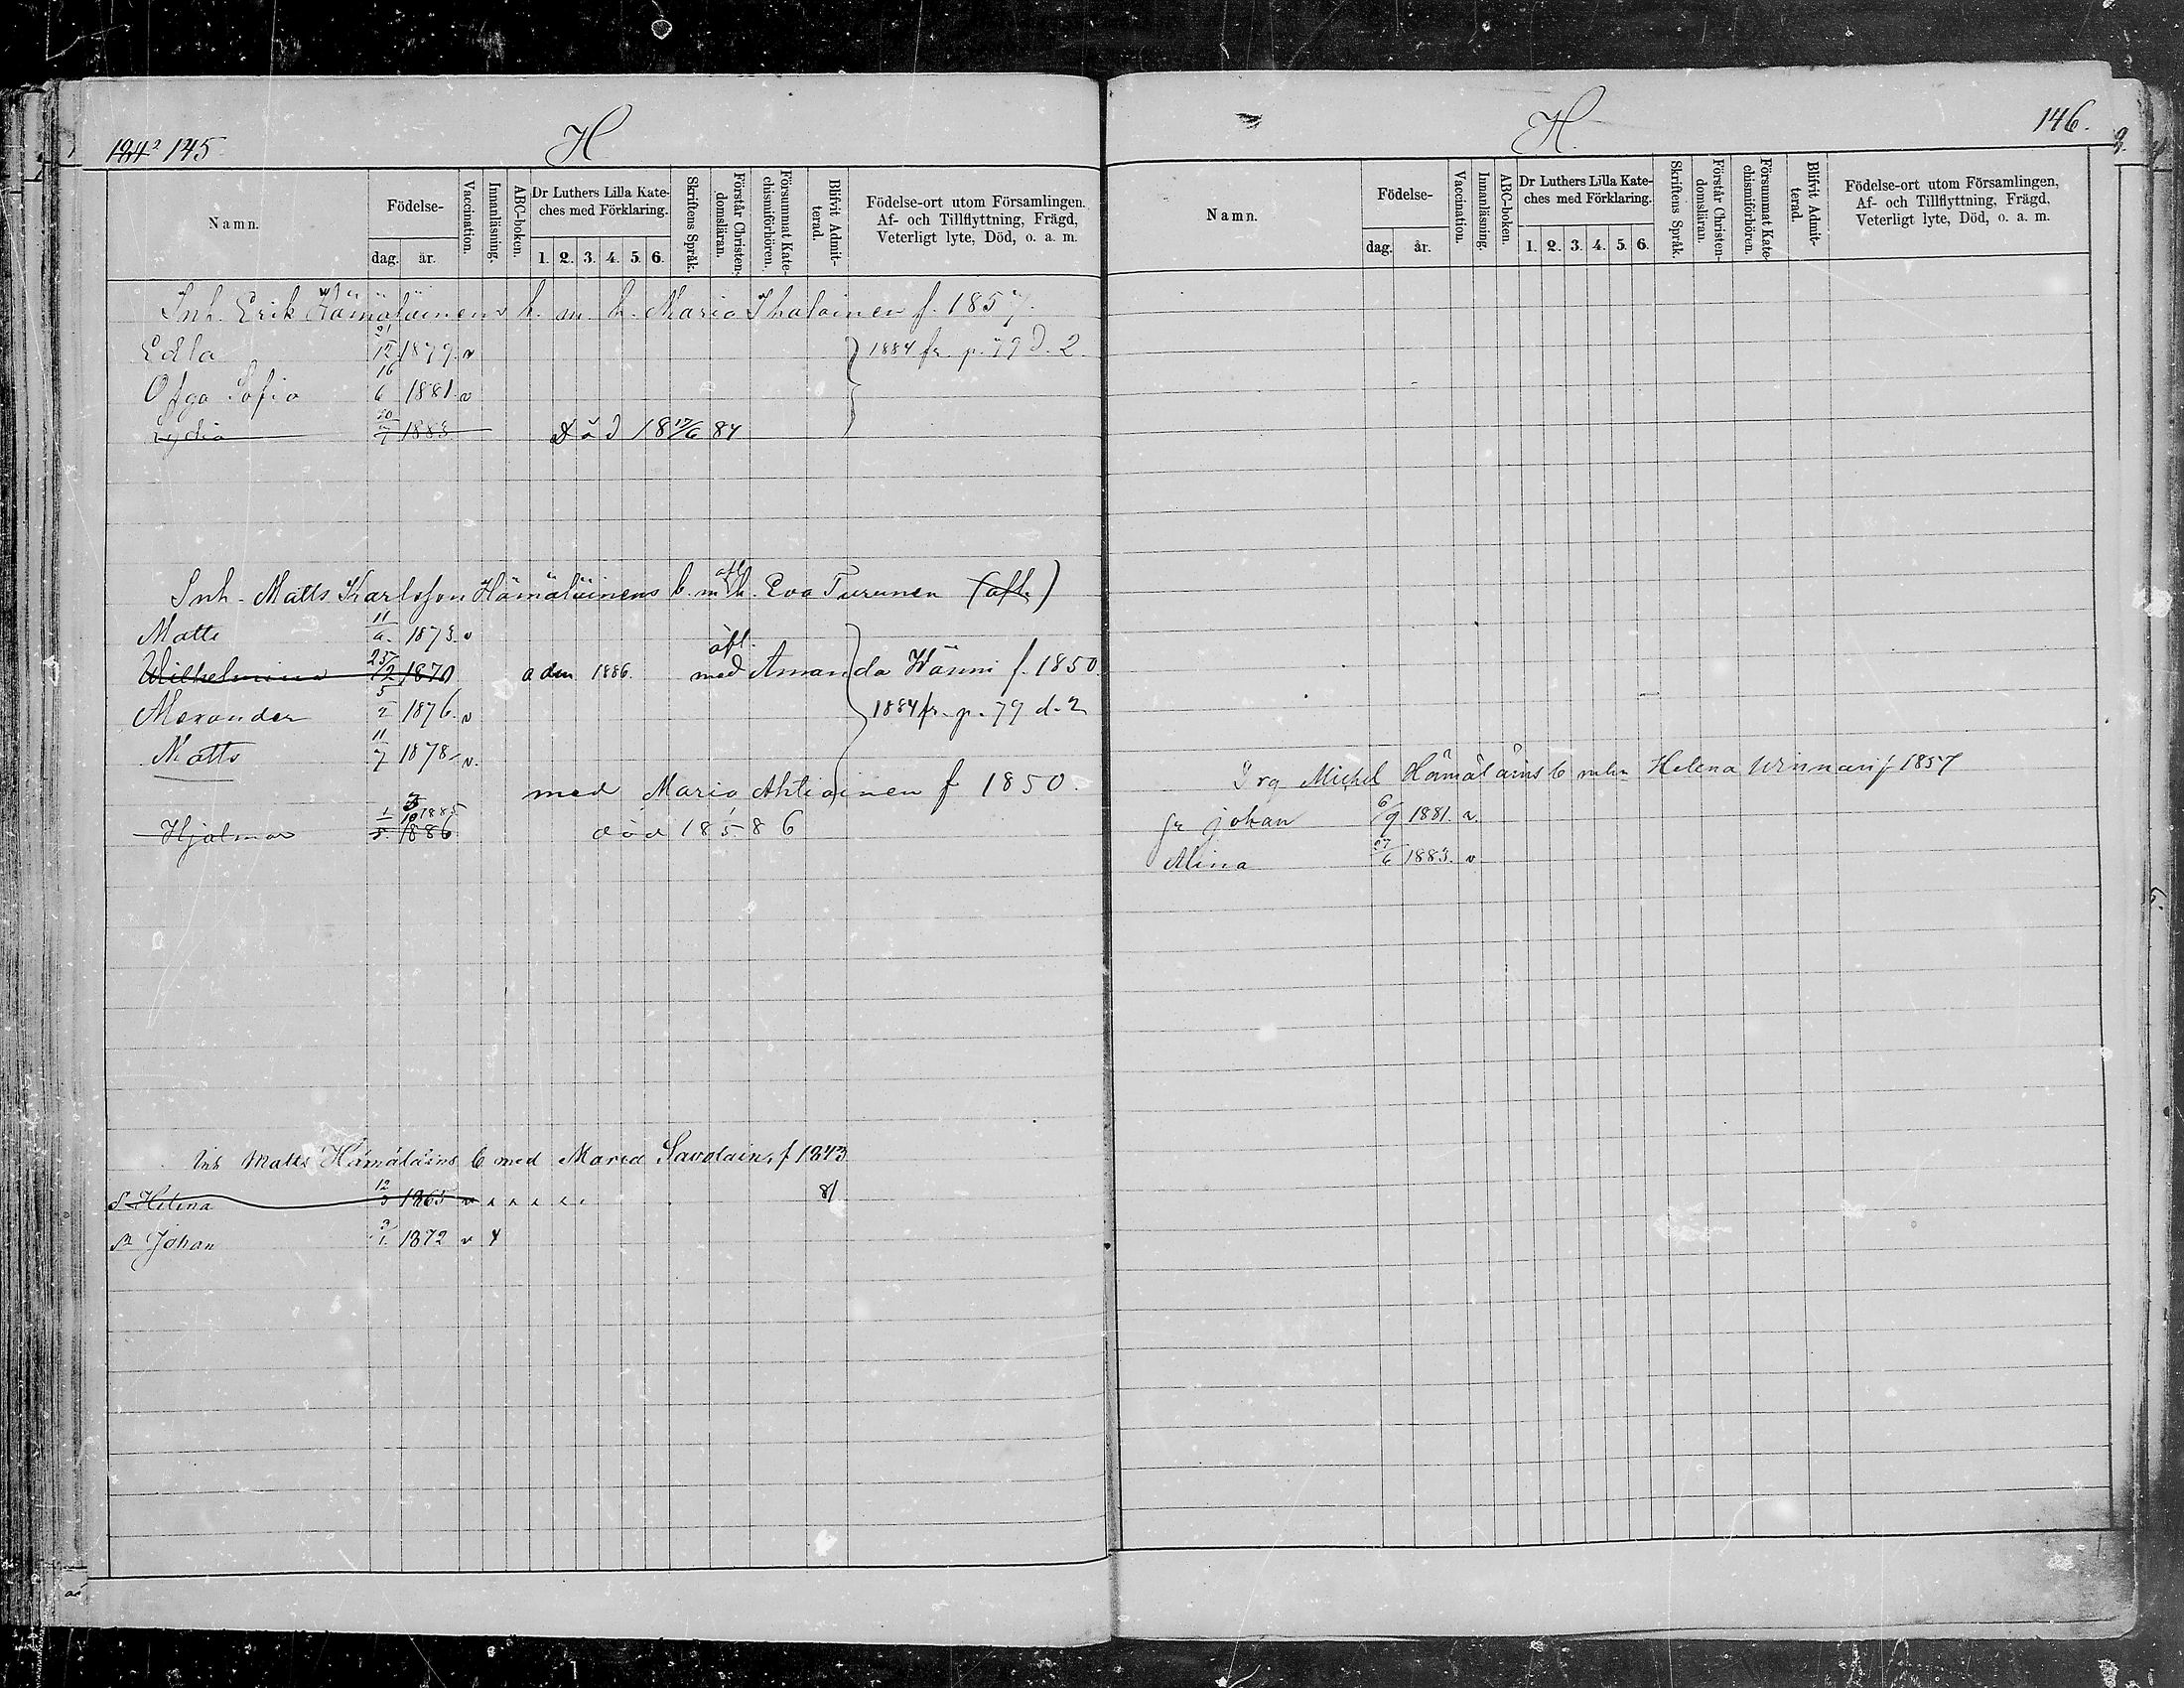 145
H
Namn.
Födelse-
dag.
år.
Vaccination.
Innanläsning.
ABC-boken.
Dr Luthers Lilla Kate-
ches med Förklaring.
1. 2. 3. 4. 5. 6.
Skriftens Språk.
Förstår Christen-
domsläran.
Försummat Kate-
chismiförhören.
Blifvit Admit-
terad.
Födelse-ort utom Församlingen,
Af- och Tillflyttning, Frägd,
Veterligt lyte, Död, o. a. m.
Inh. Erik Hämäläinens b. m. h. Maria Ihalainen f. 1857.
Edla 21/12 1879. v 1884 fr. p. 79 d. 2.
Olga Sofia 16/6 1881. v
Lydia 20/7 1883 Död 18 17/6 84
afl
Inh. Matts Karlsson Hämäläinens b. m h. Eva Turunen (afl.)
Matts 11/6. 1873. v
afl.
Wilhelmina 25/12 1870 a den 1886. med Amanda Wänni f. 1850.
Alexander 5/2 1876. v 1884 fr. p. 79 d. 2
Matts 11/7 1878 v.
med Maria Ahtiainen f 1850.
1885
Hjalmar 1886 död 18 5 86
Inh Matts Hämäläins b med Maria Savolain, f 1843
Helena 12/3 1865 v 81
Johan 1872 v
H.
146.
Namn.
Födelse-
dag.
år.
Vaccination.
Innanläsning.
ABC-boken.
Dr Luthers Lilla Kate-
ches med Förklaring.
1. 2. 3. 4. 5. 6.
Skriftens Språk.
Förstår Christen-
domsläran.
Försummat Kate-
chismiförhören.
Blifvit Admit-
terad.
Födelse-ort utom Församlingen,
Af- och Tillflyttning, Frägd,
Veterligt lyte, Död, o. a. m.
Michel Hämäläins b Helena f 1857
Johan 6/9 1881. v.
Alina 27/6 1883. v